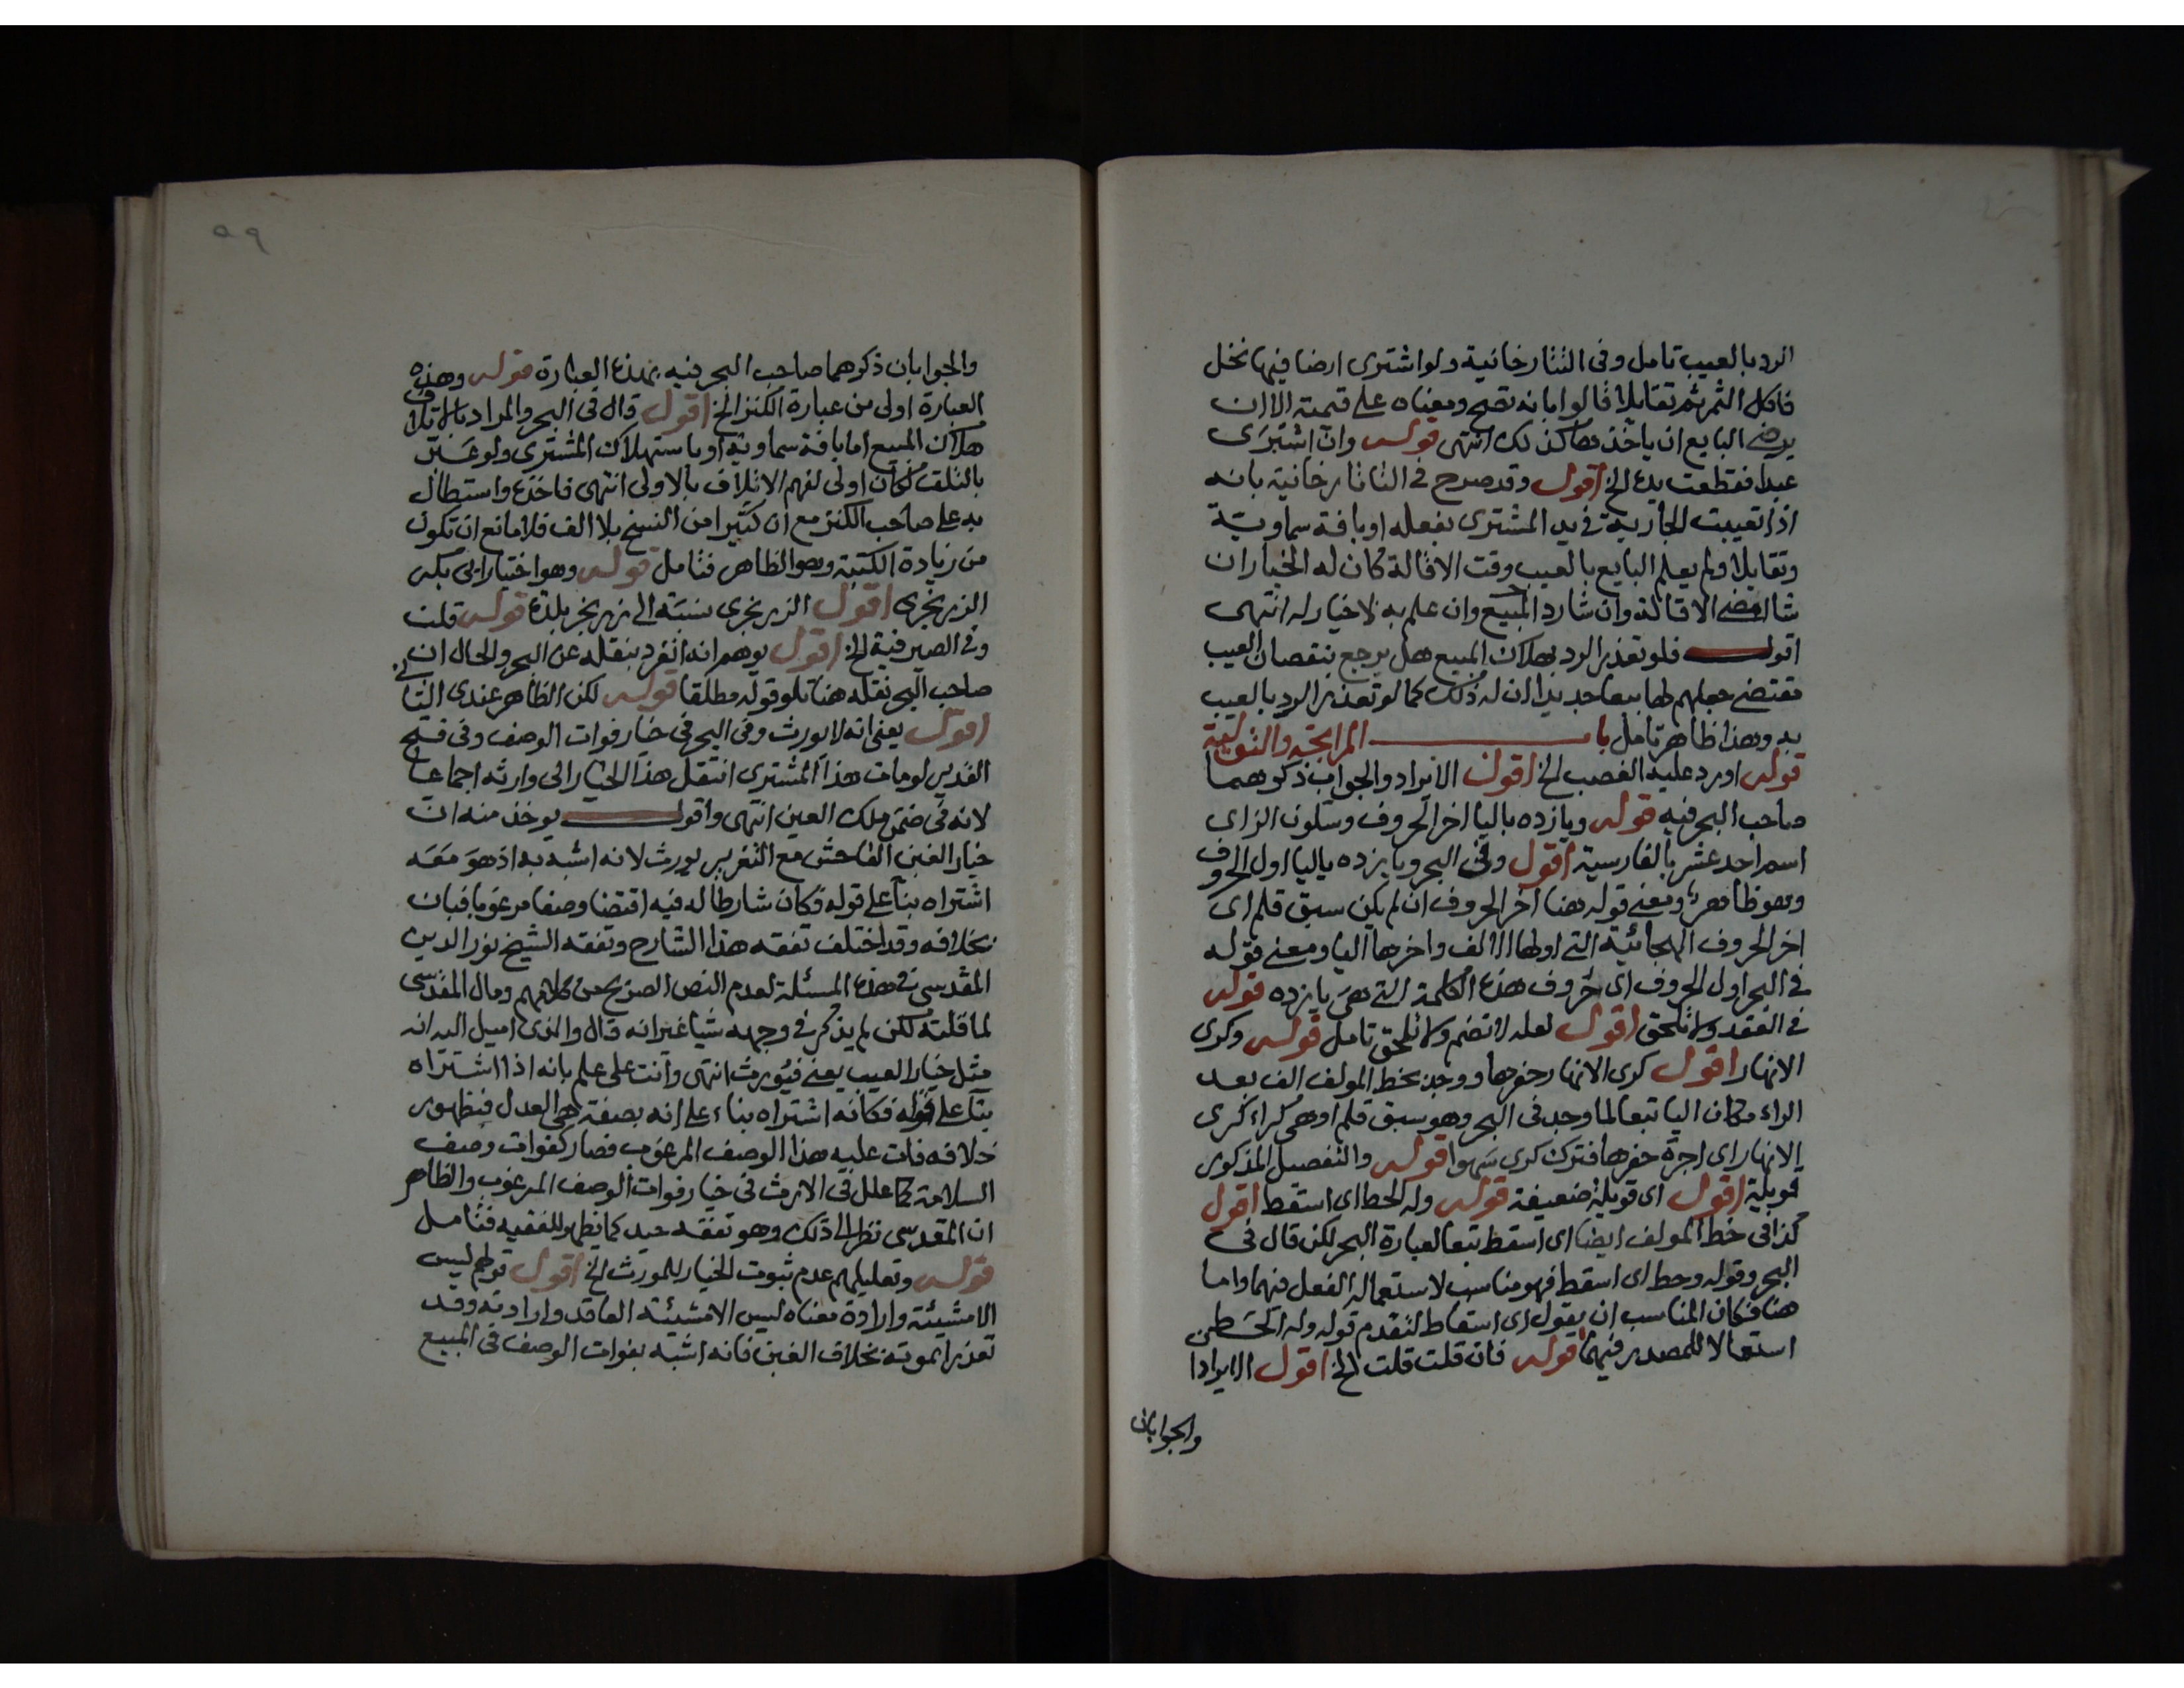 الرد بالعيب تامل وفى التتارخانية ولو اشترى ارضا فيها نخل
فاكل الثمر ثم تقايلا قالوا بانه تصح ومعناه على قيمته الا ان
يرضى البايع ان ياخذها كذلك انتهى قوله وان اشترى
عبدا فقطعت يده الخ اقول وقد صرح في التاتارخانية بانه
اذا تعيبت الجارية في يد المشترى بفعله او بافة سماوية
وتقايلا ولم يعلم البايع بالعيب وقت الاقالة كان له الخيار ان
شا امضى الاقالة وان شا رد المبيع وان علم به لا خيار له انتهى
اقول فلو تعذر الرد بهلاك المبيع هل يرجع بنقصان العيب
مقتضى جعلهم لها بيعا جديدا ان له ذلك كما لو تعذر الرد بالعيب
به وهذا ظاهر تامل باب المرابحة والتولية
قوله اورد عليه الغصب الخ اقول الايراد والجواب ذكرهما
صاحب البحر فيه قوله ويازده باليا اخر الحروف وسكون الزاى
اسم احد عشر بالفارسية اقول وفى البحر ويازده باليا اول الحروف
وهو ظاهر ومعنى قوله هنا اخر الحروف ان لم يكن سبق قلم اى
اخر الحروف الهجائية التى اولها الالف واخرها اليا ومعنى قوله
في البحر اول الحروف اى حروف هذه الكلمة التى هى يازده قوله
في العقد ولا تلحق اقول لعله لا تضم ولا تلحق تامل قوله وكرى
الانهار اقول كرى الانهار حفرها ووجد بخط المولف الف بعد
الراء مكان اليا تبعا لما وجد فى البحر وهو سبق قلم او هى كراء كرى
الانهار اى اجرة حفرها فترك كرى سهوا قوله والتفصيل المذكور
قويلة اقول اى قويلة ضعيفة قوله وله الحط اى اسقط اقول
كذا فى خط المولف ايضا اى اسقط تبعا لعبارة البحر لكن قال فى
البحر وقوله وحط اى اسقط فهو مناسب لاستعماله الفعل فيهما واما
هنا فكان المناسب ان يقول اى اسقاط لتقدم قوله وله الحط من
استعمالا للمصدر فيهما قوله فان قلت قلت الخ اقول الايرادا
والجوابان
٥٩
والجوابان ذكرهما صاحب البحر فيه بهذه العبارة قوله وهذه
العبارة اولى من عبارة الكنز الخ اقول قال فى البحر والمراد بالاتلاف
هلاك المبيع اما بافة سماوية او باستهلاك المشترى ولو عبر
بالتلف لكان اولى لفهم الاتلاف بالاولى انتهى فاخذه واستطال
به على صاحب الكنز مع ان كثيرا من النسخ بلا الف فلا مانع ان تكون
من زيادة الكتبة وهو الظاهر فتامل قوله وهو اختيار ابى بكر
الزرنجرى اقول الزرنجرى نسبة الى زرنجر بلدة قوله قلت
وفى الصيرفية الخ اقول يوهم انه انفرد بنقله عن البحر والحال ان
صاحب البحر نقله هنا تلو قوله مطلقا قوله لكن الظاهر عندى الثانى
اقول يعنى انه لا يورث وفى البحر فى خيار فوات الوصف وفى فتح
القدير لو مات هذا المشترى انتقل هذا الخيار الى وارثه اجماعا
لانه فى ضمن ملك العين انتهى واقول يوخذ منه ان
خيار الغبن الفاحش مع التغرير يورث لانه اشبه به اذ هو معه
اشتراه بنا على قوله فكان شارطا له فيه اقتضا وصفا مرغوبا فبان
بخلافه وقد اختلف تفقه هذا الشارح وتفقه الشيخ نور الدين
المقدسي فى هذه المسئلة لعدم النص الصريح من كلامهم ومال المقدسى
لما قلته لكن لم يذكر في وجهه شيا غير انه قال والذى اميل اليه انه
مثل خيار العيب يعنى فيورث انتهى وانت على علم بانه اذا اشتراه
بنا على قوله فكانه اشتراه بناء على انه بصفة هى العدل فبظهور
خلافه فات عليه هذا الوصف المرغوب فصار كفوات وصف
السلامة كما علل فى الارث فى خيار فوات الوصف المرغوب والظاهر
ان المقدسى نظر الى ذلك وهو تفقه جيد كما يظهر للفقيه فتامل
قوله وتعليلهم عدم ثبوت الخيار للمورث الخ اقول قولهم ليس
الا مشيئة وارادة معناه ليس الا مشيئة العاقد وارادته وقد
تعذرا بموته بخلاف الغبن فانه اشبه بفوات الوصف فى المبيع